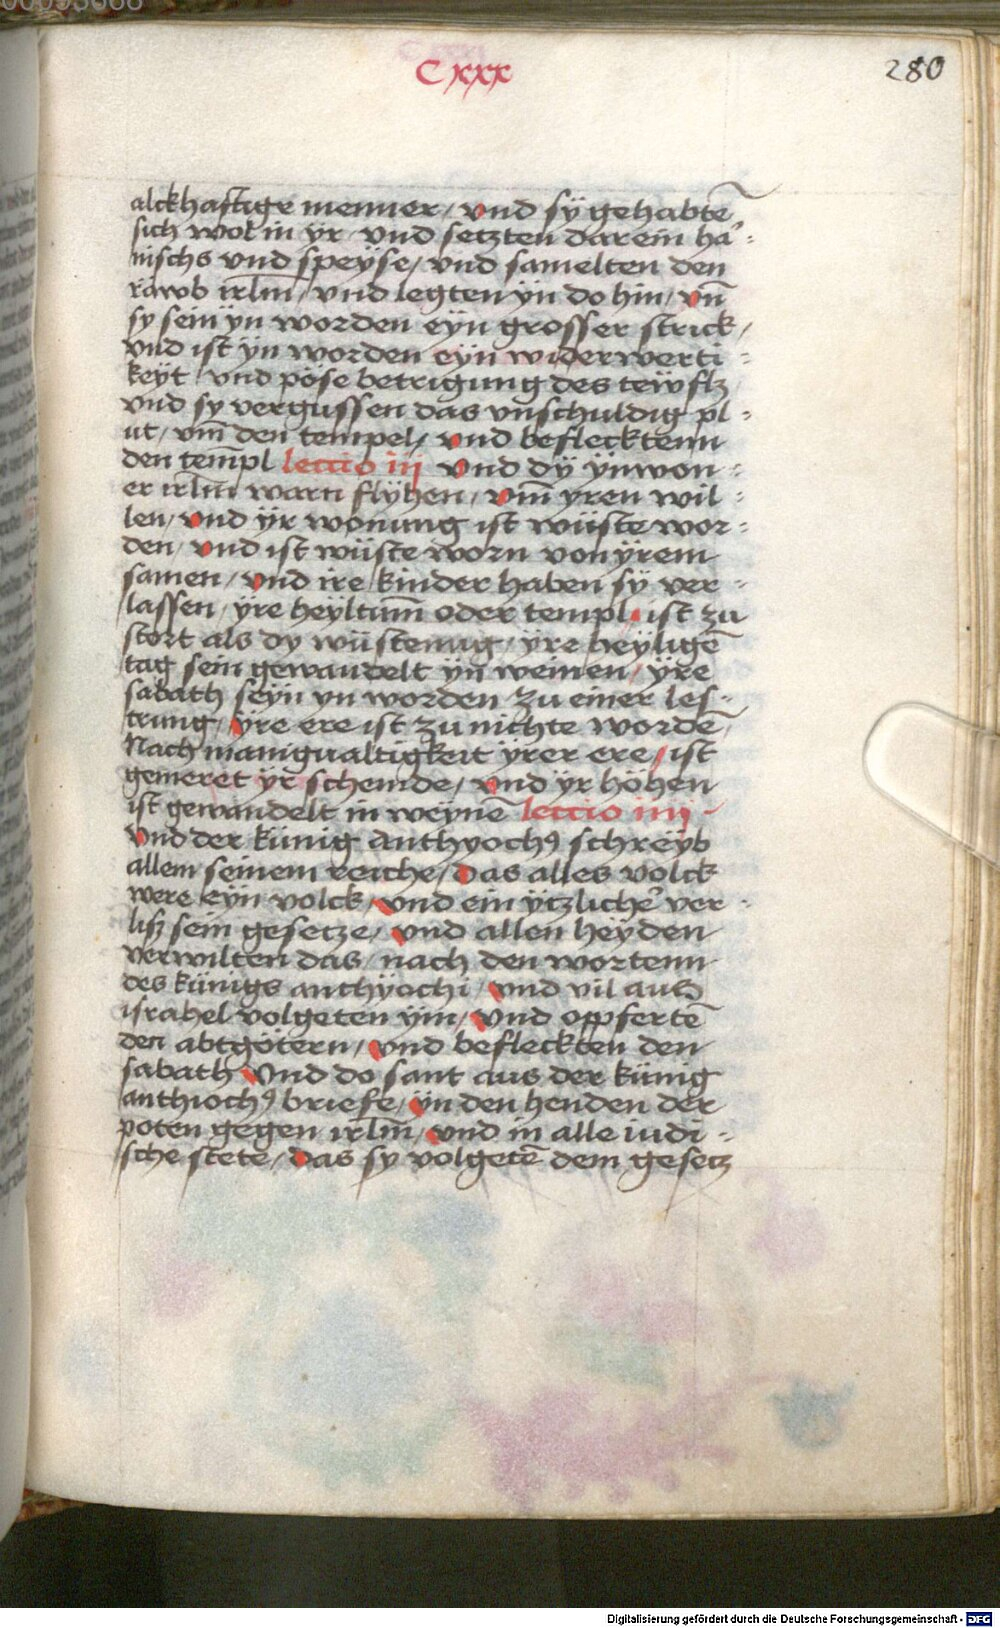 00093668
Cxxx
280
alckhaftige menner / vnd sÿ gehabtē
sich wol in yr / vnd setzten darein ha᷑ =
nischs vnd speÿse / vnd samelten den
rawb irl̄m / vnd legten ÿn do hin / vn̄
sy sein ÿn worden eÿn grosser strick /
vnd ist ÿn worden eÿn widerwerti =
keÿt / vnd pöse betrigung des teÿflz
vnd sy vergussen das vnschuldig pl =
ut / vm̄ den tempel / vnd beflecktenn
den temp̄l lectio iij vnd dÿ ÿnwon =
er irl̄m warn flÿhen / vm̄ yren wil =
len / vnd ÿr wonung ist wüste wor =
den / vnd ist wüste worn von ÿrem
samen / vnd ire kinder haben sÿ ver =
lassen / ÿre heÿltum̄ oder templ ist zu
stort als dy wüstenug / ÿre heÿligē
tag sein gewandelt ÿn weinen / ÿre
sabath seÿn yn worden zu einer les =
trung / ÿre ere ist zu nichte wordē /
Nach manigualtigkeit ÿrer ere / ist
gemeret ÿr schemde / vnd ÿr höhen
ist gewandelt in weÿnē lectio iiij
Vnd der künig Anthyochꝰ schreÿb
allem seinem reiche / das alles volck
were eÿn volck / vnd ein ÿtzliche᷑ ver =
lisz sein gesetze / vnd allen heÿden
verwilten das / nach den wortenn
des künigs anthÿochi / vnd vil auß
israhel volgeten ÿm / vnd opfertē
den abtgötern / vnd befleckten den
sabath Vnd do sant aus der künig
anthiochꝰ briefe / ÿn den henden der
poten gegen irl̄m / vnd in alle iudi =
sche stete / das sy volgetē dem gesetz
Digitalisierung gefördert durch die Deutsche Forschungsgemeinschaft - DFG